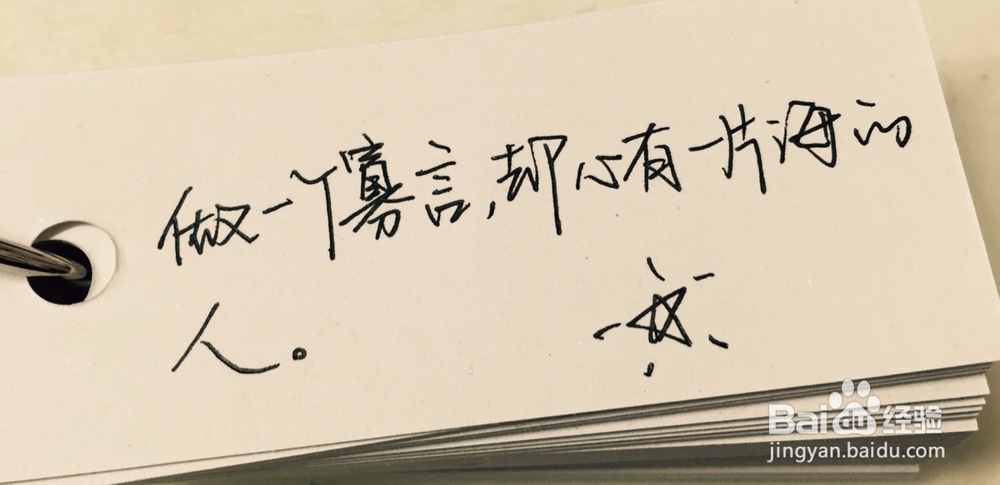 做一个寡言,却心有一片海的
人。
Baidu经验
jingyan.baidu.com